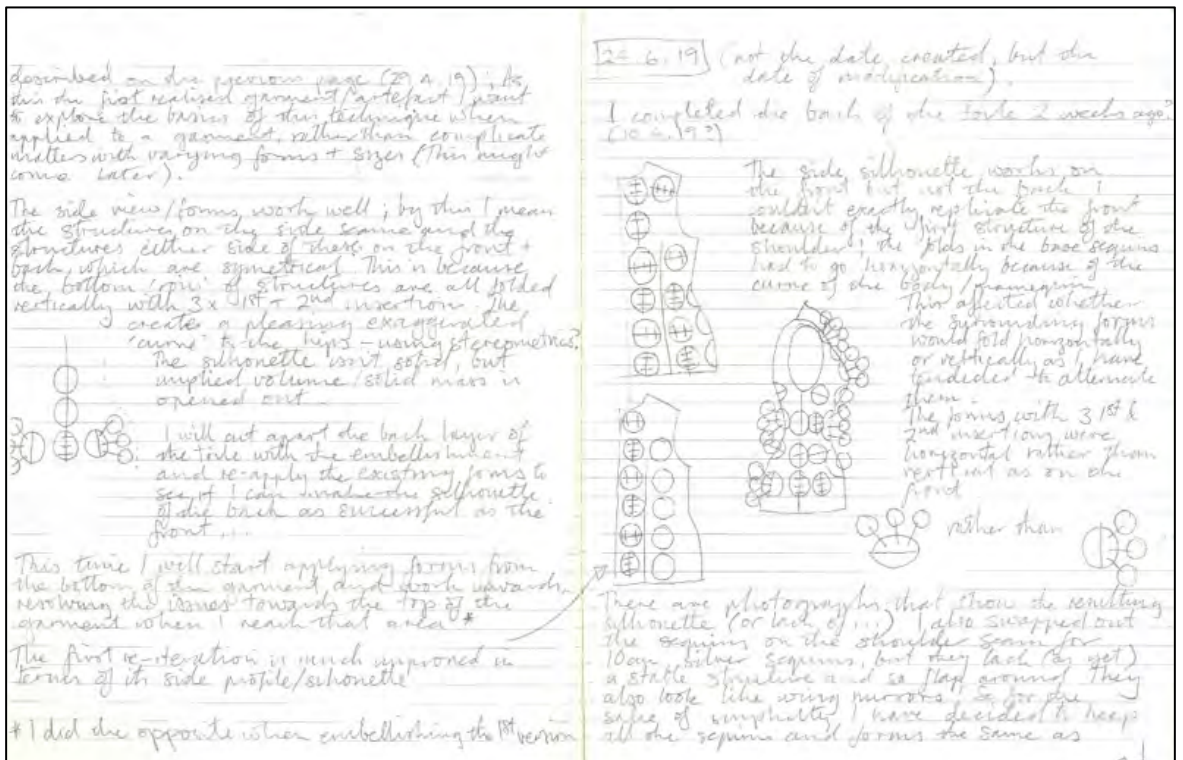 described on the previous page (29.4.19); As
this the first realised garment/artefact I want
to explore the basics of this technique when
applied to a garment, rather than complicate
matters with varying forms + sizes (This might
come Later).
The side view/forms work well; by this I mean
the structures on the side seams and the
structures either side of these on the front +
back, which are symetrical. This is because
the bottom 'cono' of structures are all folded
vertically with 3x 1st + 2nd insertion. The
create a pleasing exaggerated
'curve' to the hips – using stereometrics?
The silhouette isn't solid, but
implied volume/solid mass is
opened out.
I will cut apart the back layer of
the toile with the embellishment
and re-apply the existing forms to
see if I can make the silhouette
of the back as successful as the
front...
This time I will start applying forms from
the bottom of the garment, and work upwards
resolving the issues towards the top of the
garment when I reach that area *
The first re-iteration is much improved in
terms of its side profile/silhouette
* I did the opposite when embellishing the 1st version
24.6.19 (not the date created, but the
date of modification).
I completed the back of the toile 2 weeks ago?
(10.6.19?)
The side silhouette works on
the front but not the back. I
couldn't exactly replicate the front
because of the first structure of the
shoulder; the folds in the base sequins
had to go horizontally because of the
curve of the body/mannequin
This affected whether
the surrounding forms
would fold horizontally
or vertically as I have
tended to alternate
them.
The forms with 3 1st &
2nd insertions were
horizontal rather than
vertical as on the
front
rather than
There are photographs that show the resulting
silhouette (or lack of...) I also swapped out
the sequins on the shoulder seam for
10cm silver sequins, but they lack (as yet)
a stable structure and so flap around. They
also look like wing mirrors. So for the
sake of simplicity, I have decided to keep
all the sequins and forms the same as